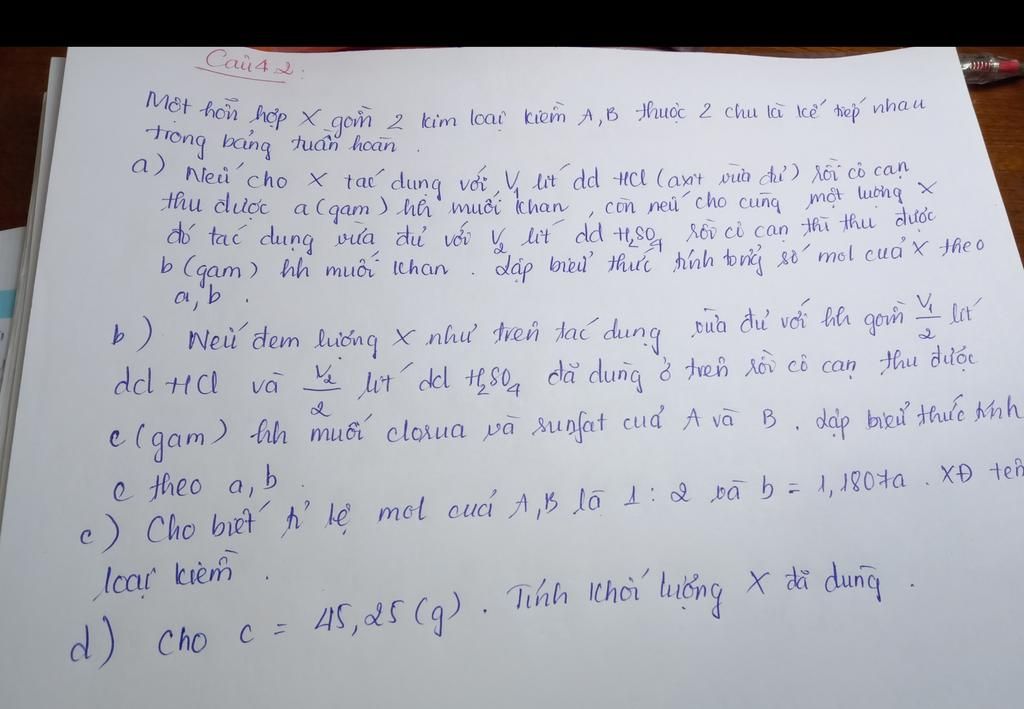 Câu 4.2:
Một hỗn hợp X gồm 2 kim loại kiềm A, B thuộc 2 chu kì kế tiếp nhau
trong bảng tuần hoàn.
a) Nếu cho X tác dụng với V₁ lít dd HCl (axit vừa đủ) rồi cô cạn
thu được a (gam) hh muối khan, còn nếu cho cùng một lượng X
đó tác dụng vừa đủ với V₂ lít dd H₂SO₄ rồi cô cạn thì thu được
b (gam) hh muối khan. Lập biểu thức tính tổng số mol của X theo
a, b.
b) Nếu đem lượng X như trên tác dụng vừa đủ với hh gồm V₁/2 lít
dd HCl và V₂/2 lít dd H₂SO₄ đã dùng ở trên rồi cô cạn thu được
c (gam) hh muối clorua và sunfat của A và B. Lập biểu thức tính
c theo a, b.
c) Cho biết tỉ lệ mol của A, B là 1 : 2 và b = 1,1807a. XĐ tên
loại kiềm.
d) Cho c = 45,25 (g). Tính khối lượng X đã dùng.